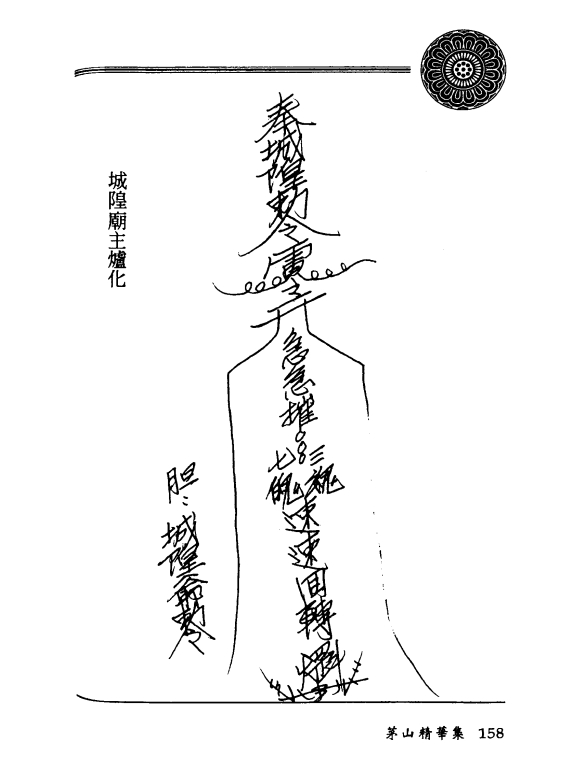 城隍廟主爐化
奉城隍勅令
急急摧
三魂
七魄
速速回轉
胆:城隍爺勅令
茅山精華集 158